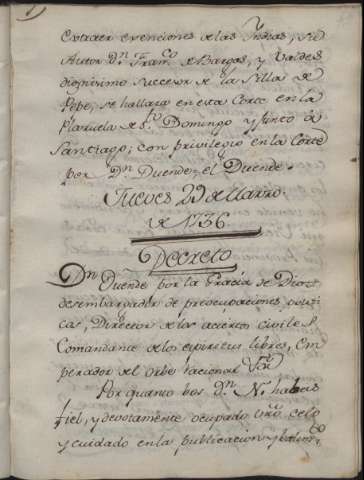 Extraer evenciones de las Yndias, su
Autor Dⁿ. Franᶜᵒ de Bargas, y Valdes
dignissimo succesor de la Silla de
Pepe, se hallara en esta Corte en la
Plazuela de Sᵗᵒ. Domingo y junto a
Santiago; con privilegio en la Corte
por Dⁿ Duende, el Duende.
Jueves 29 de Marzo
de 1736
Decreto
Dⁿ Duende por la Gracia de Dios
desembargador de preocupaciones
cas, Director de los aciertos civiles
Comandante de los espiritus libres, Em
perador del Orbe racional
Por quanto bos Dⁿ. N. habeis
fiel, y devotamente ocupado vrõ. celo
y cuidado en la publicacion y